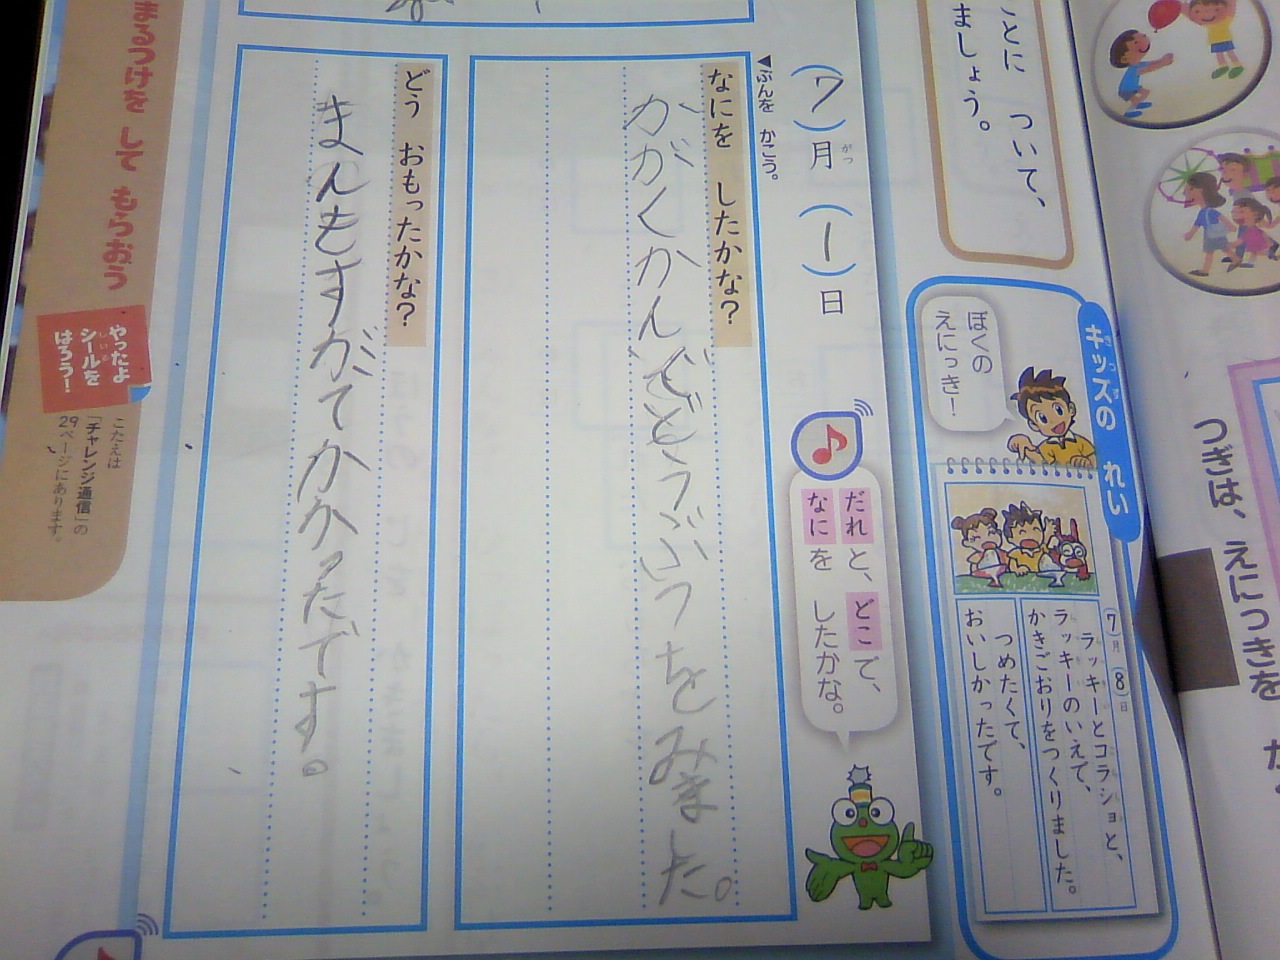 つぎは、えにっきを
ことに ついて、
ましょう。
キッズの れい
キッズ
ぼくの
えにっき!
7月 8日
ラッキーとコラショと、
ラッキーのいえで、
かきごおりをつくりました。
つめたくて、
おいしかったです。
(7)月 (1)日
がつ
だれと、どこで、
なにを したかな。
◀ぶんを かこう。
なにを したかな?
かがくかんでどうぶつをみました。
どう おもったかな?
まんもすがでかかったです。
まるつけを して もらおう
やったよ
シールを
しいる
はろう!
こたえは
「チャレンジ通信」の
29ページにあります。